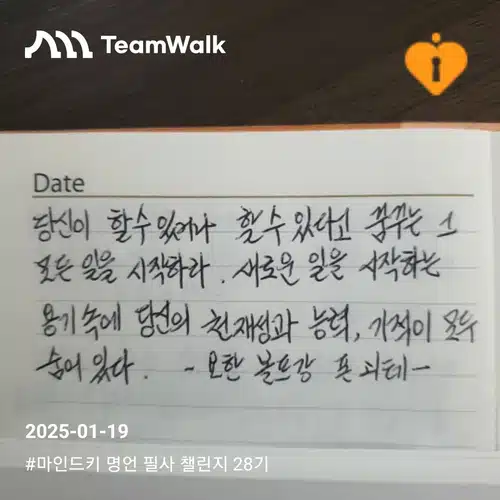 TeamWalk
Date
당신이 할수있거나 할수있다고 꿈꾸는 그
모든 일을 시작하라. 새로운 일을 시작하는
용기속에 당신의 천재성과 능력, 기적이 모두
숨어 있다. - 요한 볼프강 폰 괴테 -
2025-01-19
#마인드키 명언 필사 챌린지 28기